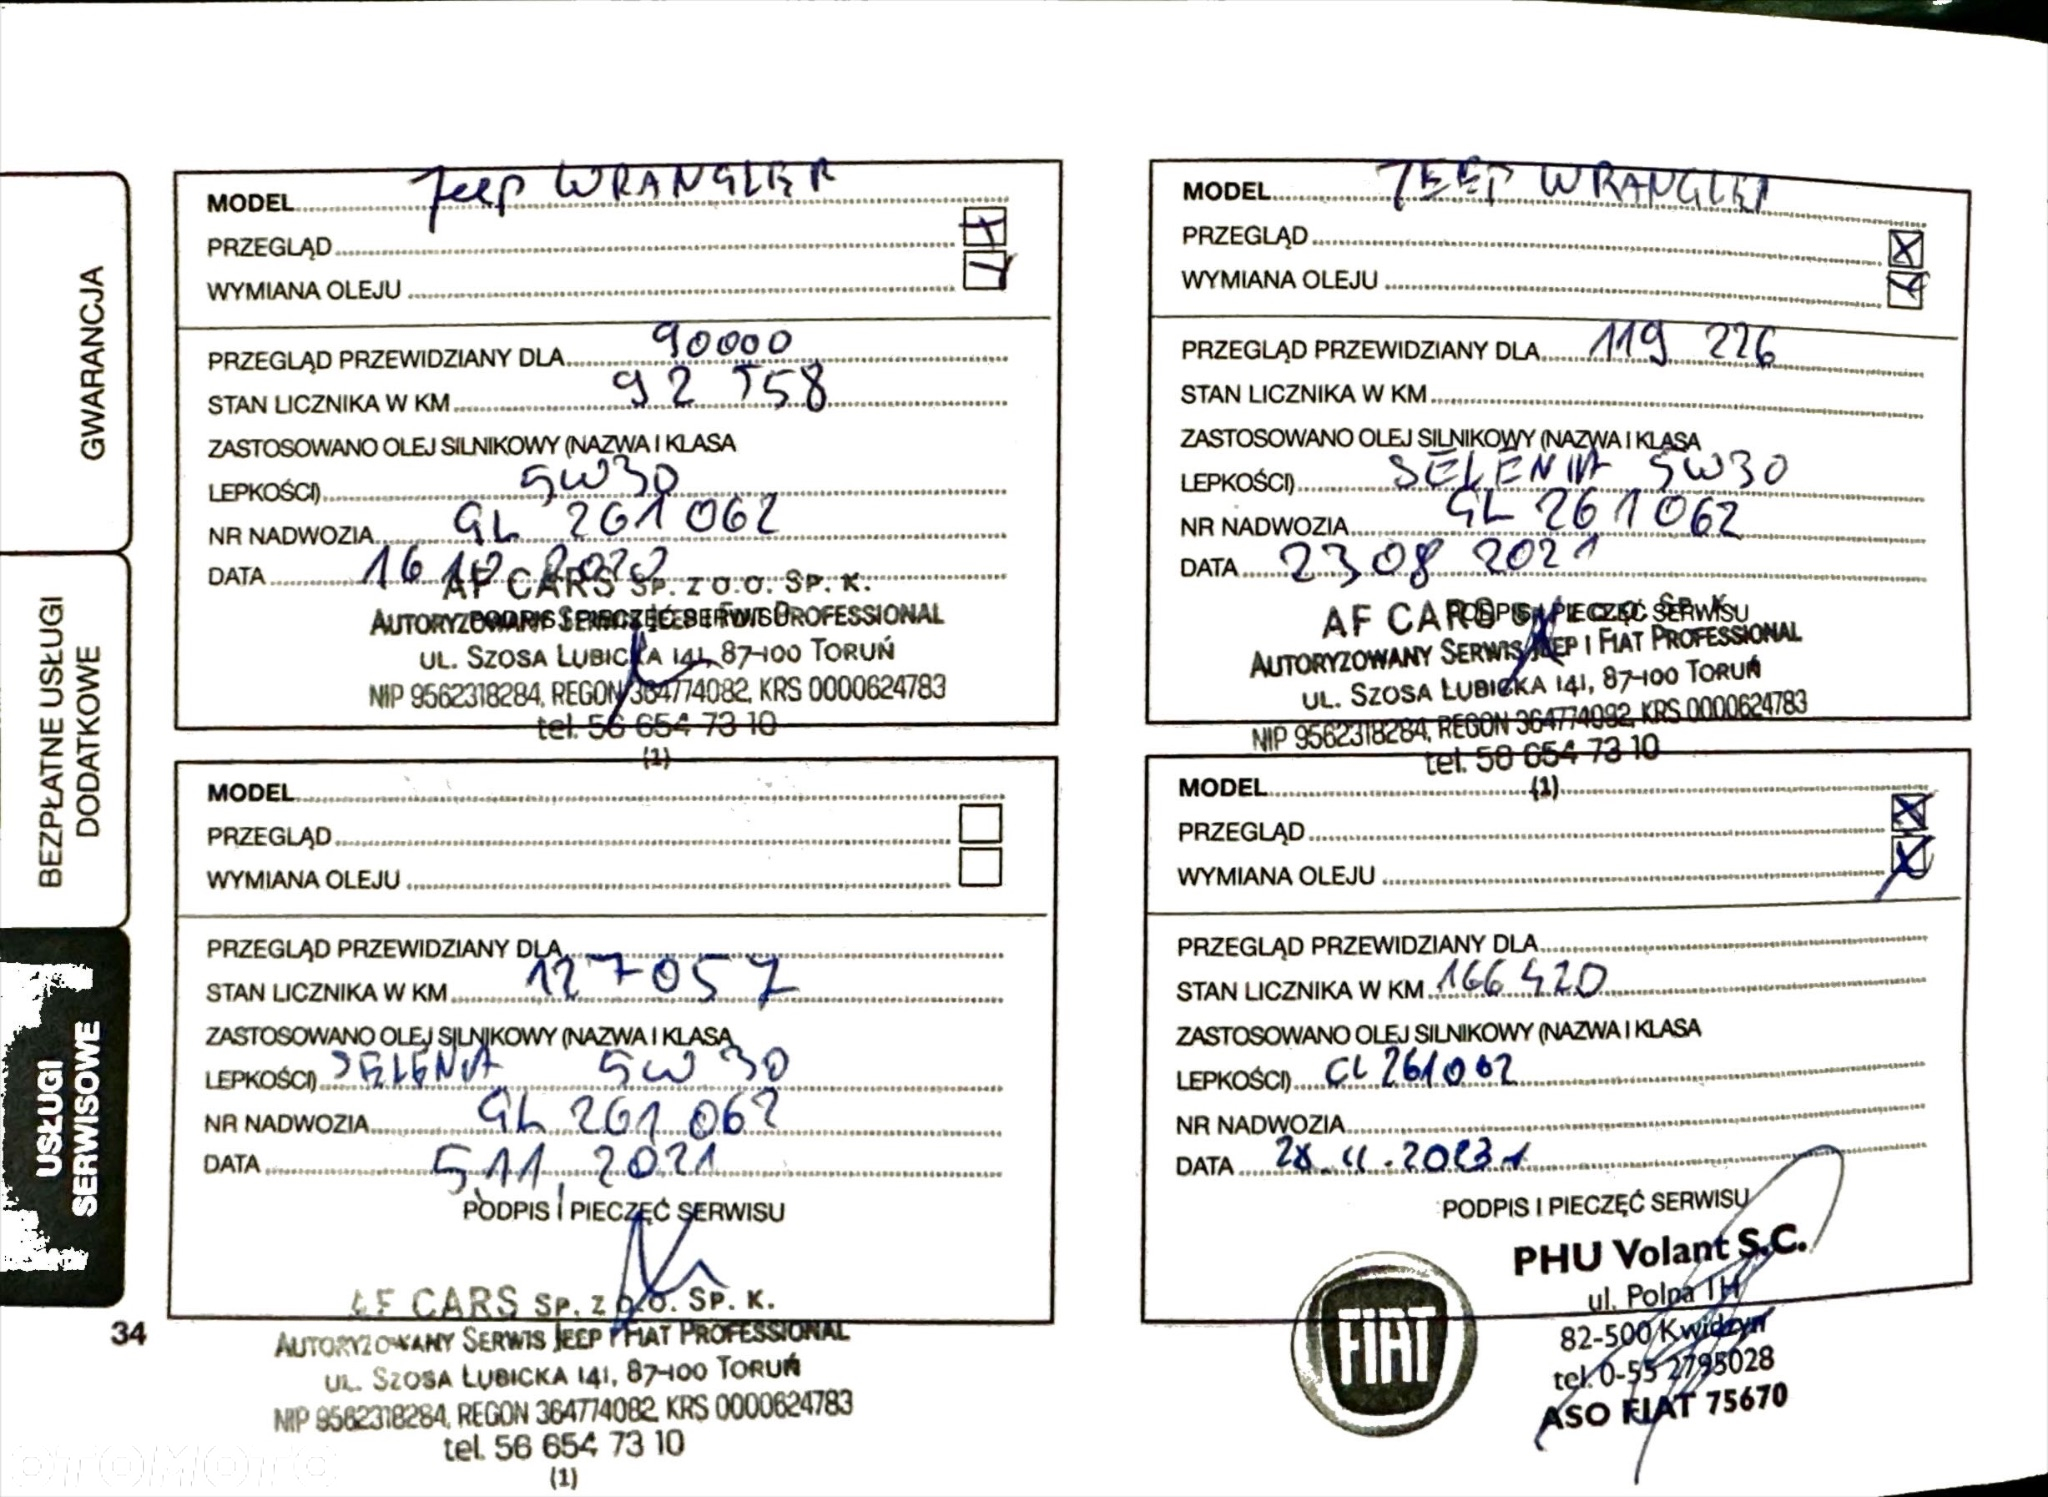 GWARANCJA
BEZPŁATNE USŁUGI
DODATKOWE
USŁUGI
SERWISOWE
34
MODEL Jeep WRANGLER
PRZEGLĄD
WYMIANA OLEJU
PRZEGLĄD PRZEWIDZIANY DLA 90000
STAN LICZNIKA W KM 92 558
ZASTOSOWANO OLEJ SILNIKOWY (NAZWA I KLASA
LEPKOŚCI) 5W30
NR NADWOZIA GL 261062
DATA 16
PODPIS I PIECZĘĆ SERWISU
AF CARS SP. Z O.O. SP. K.
AUTORYZOWANY SERWIS JEEP I FIAT PROFESSIONAL
UL. SZOSA LUBICKA 141, 87-100 TORUŃ
NIP 9562318284, REGON 364774082, KRS 0000624783
tel. 56 654 73 10
(1)
MODEL JEEP WRANGLER
PRZEGLĄD
WYMIANA OLEJU
PRZEGLĄD PRZEWIDZIANY DLA 119 226
STAN LICZNIKA W KM
ZASTOSOWANO OLEJ SILNIKOWY (NAZWA I KLASA
LEPKOŚCI) SELENIA 5W30
NR NADWOZIA GL 261062
DATA 23 08 2021
PODPIS I PIECZĘĆ SERWISU
AF CARS SP. K.
AUTORYZOWANY SERWIS JEEP I FIAT PROFESSIONAL
UL. SZOSA LUBICKA 141, 87-100 TORUŃ
NIP 9562318284, REGON 364774082, KRS 0000624783
tel. 56 654 73 10
(1)
MODEL
PRZEGLĄD
WYMIANA OLEJU
PRZEGLĄD PRZEWIDZIANY DLA
STAN LICZNIKA W KM 127057
ZASTOSOWANO OLEJ SILNIKOWY (NAZWA I KLASA
LEPKOŚCI) SELENIA 5W30
NR NADWOZIA GL 261 062
DATA 5 11 2021
PODPIS I PIECZĘĆ SERWISU
AF CARS SP. Z O.O. SP. K.
AUTORYZOWANY SERWIS JEEP I FIAT PROFESSIONAL
UL. SZOSA LUBICKA 141, 87-100 TORUŃ
NIP 9562318284, REGON 364774082, KRS 0000624783
tel. 56 654 73 10
(1)
MODEL
PRZEGLĄD
WYMIANA OLEJU
PRZEGLĄD PRZEWIDZIANY DLA
STAN LICZNIKA W KM 166420
ZASTOSOWANO OLEJ SILNIKOWY (NAZWA I KLASA
LEPKOŚCI) CL 261062
NR NADWOZIA
DATA 28.11.2023
PODPIS I PIECZĘĆ SERWISU
FIAT
PHU Volant S.C.
ul. Polna 1H
82-500 Kwidzyn
tel. 0-55 2795028
ASO FIAT 75670
OTOMOTO